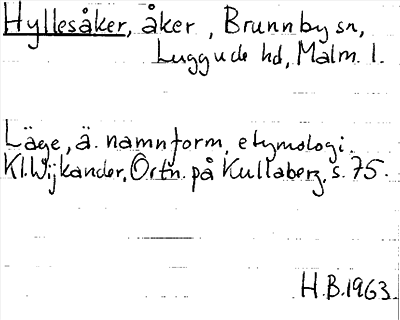 Hyllesåker, åker, Brunnby sn,
Luggude hd, Malm. l.
Läge, ä. namnform, etymologi.
Kl. Wijkander, Ortn. på Kullaberg, s. 75.
H.B. 1963.